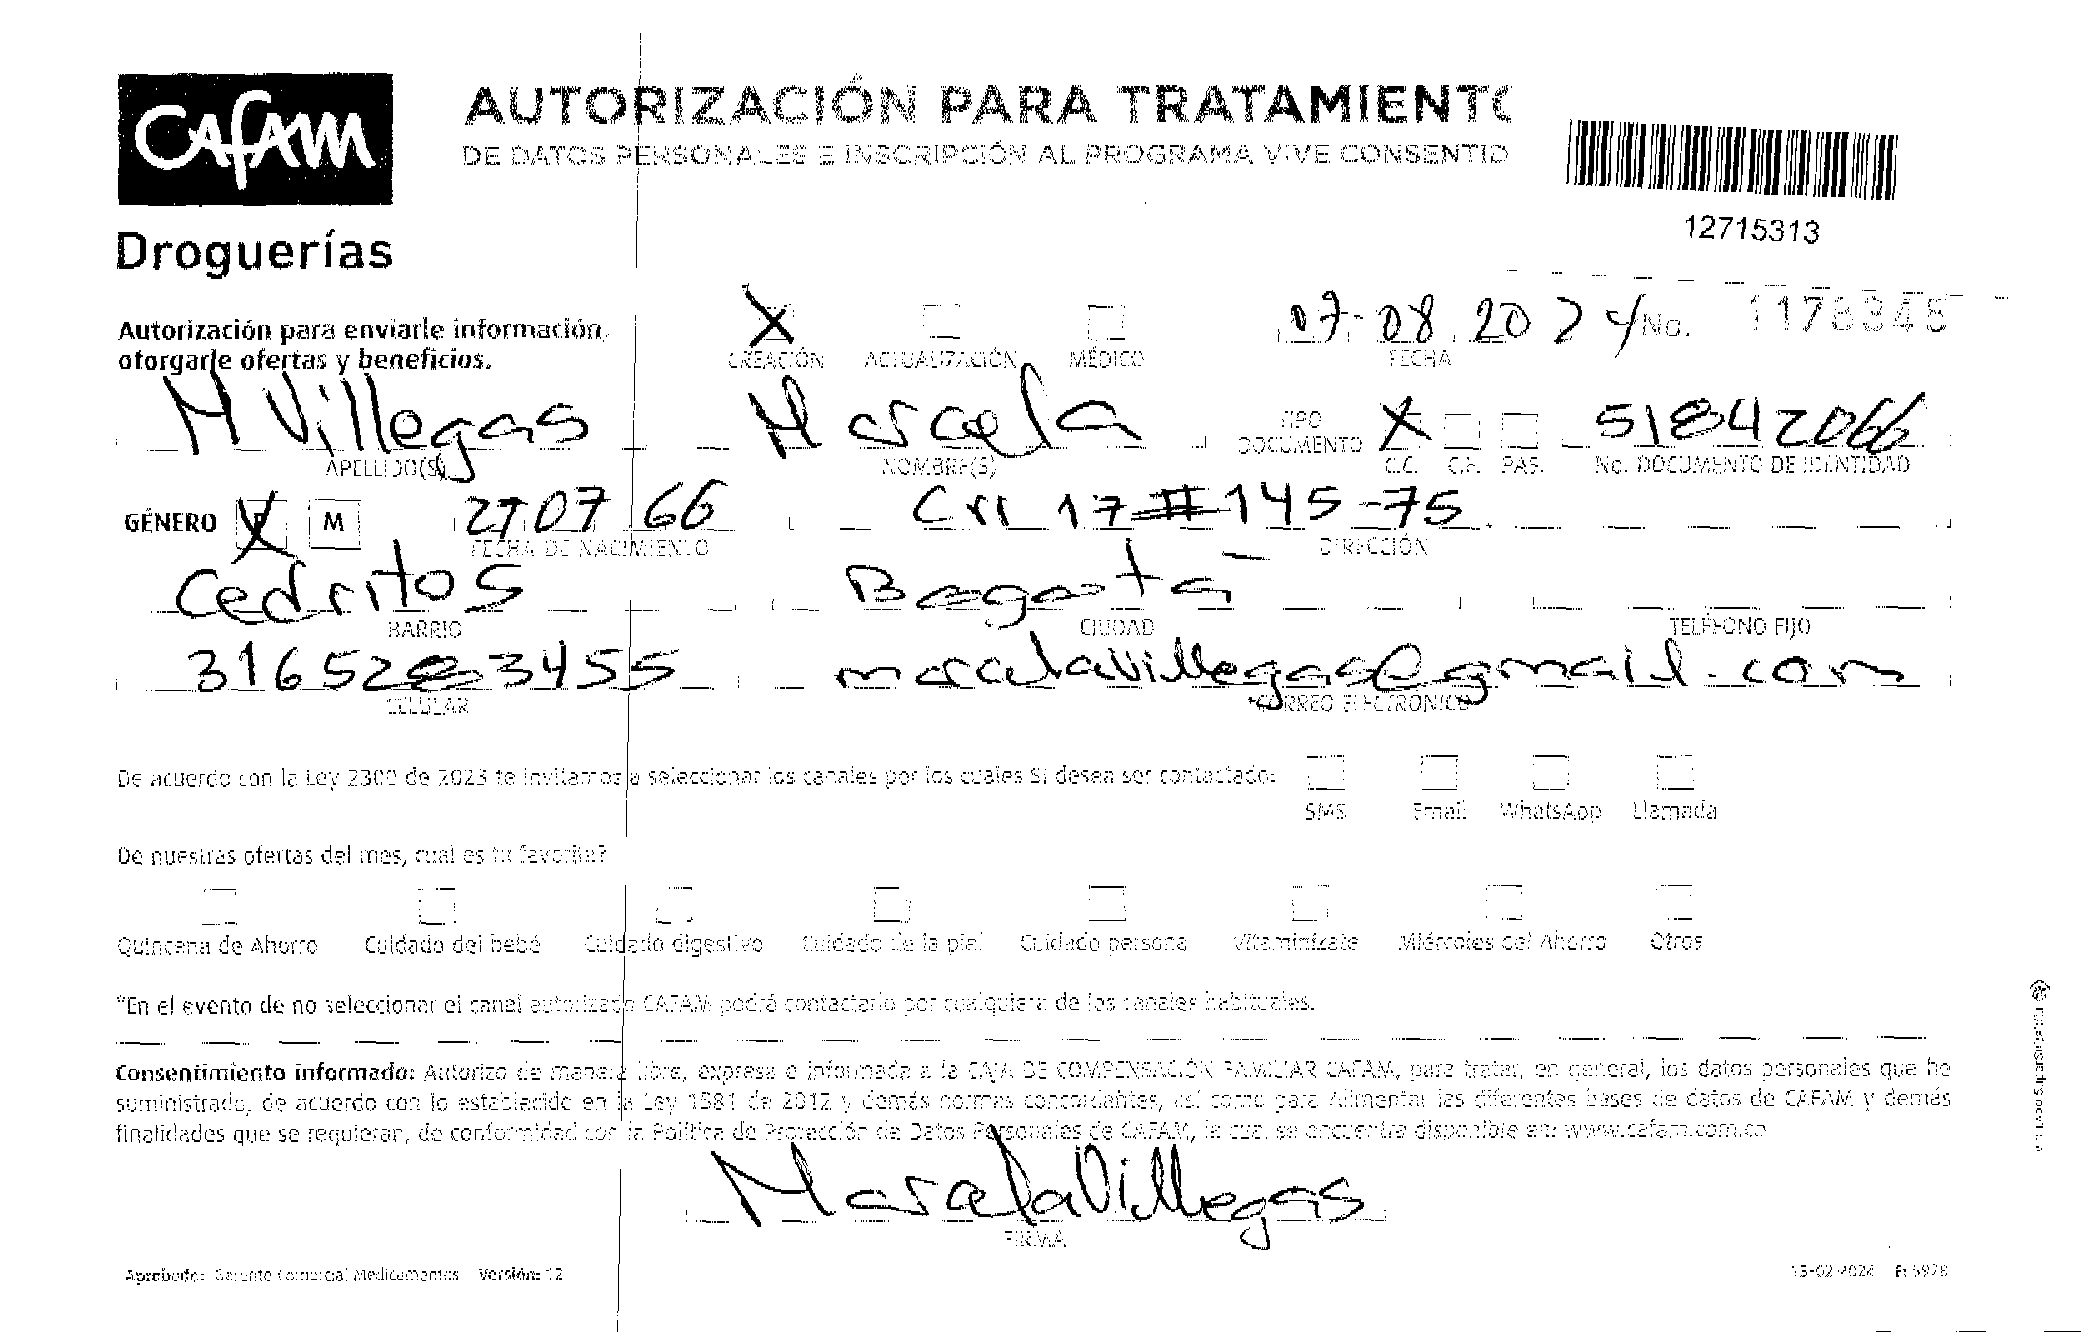 CAFAM
Droguerías
AUTORIZACIÓN PARA TRATAMIENTO
DE DATOS PERSONALES E INSCRIPCIÓN AL PROGRAMA VIVE CONSENTID
12715313
Autorización para enviarle información,
otorgarle ofertas y beneficios.
X CREACIÓN ACTUALIZACIÓN MÉDICO
07-08.2024 No. 1178348
FECHA
M Villegas Marcela TIPO DOCUMENTO X 51842066
APELLIDO(S) NOMBRE(S) C.C. C.E. PAS. No. DOCUMENTO DE IDENTIDAD
GÉNERO F M 27 07 66 Crr 17 # 145-75
FECHA DE NACIMIENTO DIRECCIÓN
Cedritos Bogotá
BARRIO CIUDAD TELÉFONO FIJO
3165283455 marcelavillegas@gmail.com
CELULAR CORREO ELECTRÓNICO
De acuerdo con la Ley 2300 de 2023 te invitamos a seleccionar los canales por los cuales SI desea ser contactado:
SMS Email WhatsApp Llamada
De nuestras ofertas del mes, cual es tu favorita?
Quincena de Ahorro Cuidado del bebé Cuidado digestivo Cuidado de la piel Cuidado persona Vitaminízate Miércoles del Ahorro Otros
*En el evento de no seleccionar el canal autorizado CAFAM podrá contactarlo por cualquiera de los canales habituales.
Consentimiento informado: Autorizo de manera libre, expresa e informada a la CAJA DE COMPENSACIÓN FAMILIAR CAFAM, para tratar, en general, los datos personales que he
suministrado, de acuerdo con lo establecido en la Ley 1581 de 2012 y demás normas concordantes, así como para Alimentar las diferentes bases de datos de CAFAM y demás
finalidades que se requieran, de conformidad con la Política de Protección de Datos Personales de CAFAM, la cual se encuentra disponible en: www.cafam.com.co
Marcela Villegas
FIRMA
Aprobado: Gerente Comercial Medicamentos Versión: 12